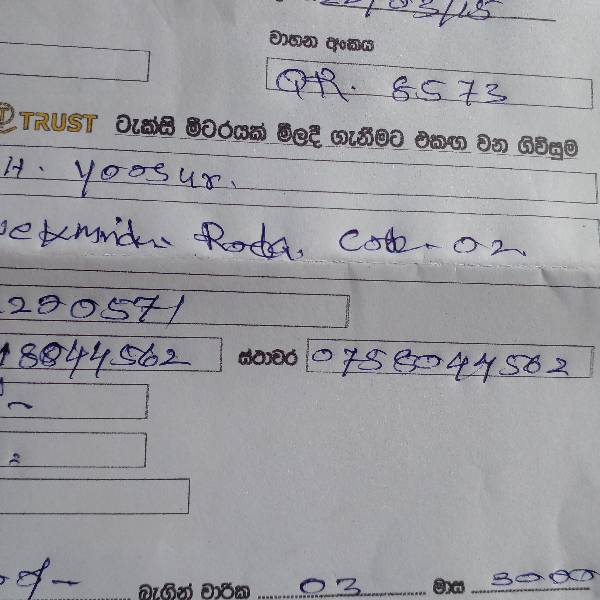 22/03/15
වාහන අංකය
QR. 8573
TRUST ටැක්සි මීටරයක් මිලදී ගැනීමට එකඟ වන ගිවිසුම
H. Yoosur.
Roda. Cob - 02
290571
8844562 ස්ථාවර 0758044562
බැගින් වාරික 03 මාස 3000